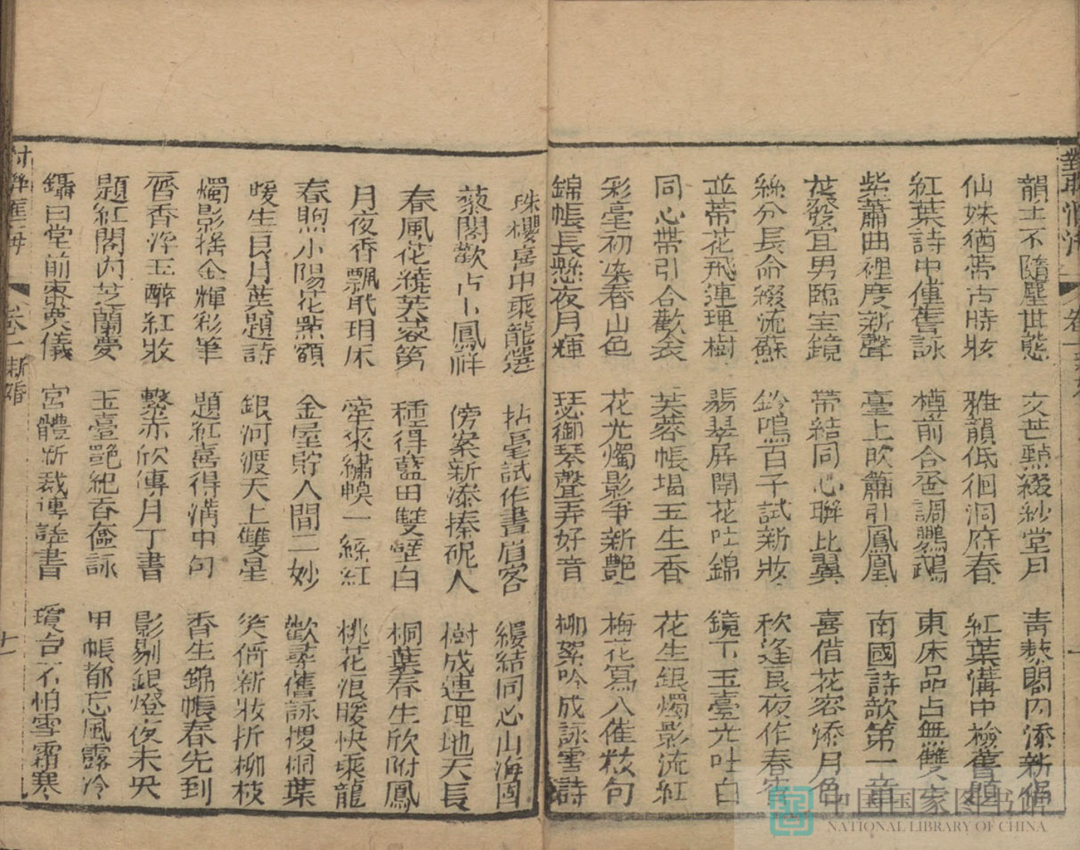 對聯匯海 卷一新婚
韻士不隨塵世態 文芭點綴紗堂月 青藜閣內添新侶
仙姝猶帶古時妝 雅韻低徊洞府春 紅葉溝中檢舊題
紅葉詩中僅舊詠 樽前合卺調鸚鵡 東床品占無雙士
紫蕭曲裡度新聲 臺上吹簫引鳳凰 南國詩歌第一章
發宜男臨宝鏡 帶結同心聯比翼 喜借花容添月色
絲分長命綴流蘇 鈴鳴百子試新妝 秋逢良夜作春宵
並蒂花飛連理樹 翡翠屏開花吐錦 鏡下玉臺光吐白
同心帶引合歡衾 芙蓉帳堨玉生香 花生銀燭影流紅
彩毫初染春山色 花光燭影爭新艶 梅花寫入催粧句
錦帳長懸夜月輝 瑟御琴聲弄好音 柳絮吟成詠雪詩
珠樓喜中乘龍選 拈毫試作畫眉客 緩結同心山海固
藜閣歡占卜鳳祥 傍案新添捧硯人 樹成連理地天長
春風花繞芙蓉第 種得藍田雙壁白 桐葉春生欣附鳳
月夜香飄玳瑁床 牽來繡幔一絲紅 桃花浪暖快乘龍
春煦小陽花點額 金屋貯人間二妙 歡舊詠搜桐葉
暖生良月葉題詩 銀河渡天上雙星 笑倩新妝折柳枝
燭影搖金輝彩筆 題紅喜得溝中句 香生錦帳春先到
唇香浮玉醉紅妝 繫赤欣傳月下書 影剔銀燈夜未央
題紅閣內芝蘭夢 玉臺艶紀香奩詠 甲帳都忘風露冷
日堂前棗栗儀 宮體新裁傳書 瓊台不怕雪霜寒
對聯匯海 卷一新婚 七
中国国家图书馆
NATIONAL LIBRARY OF CHINA